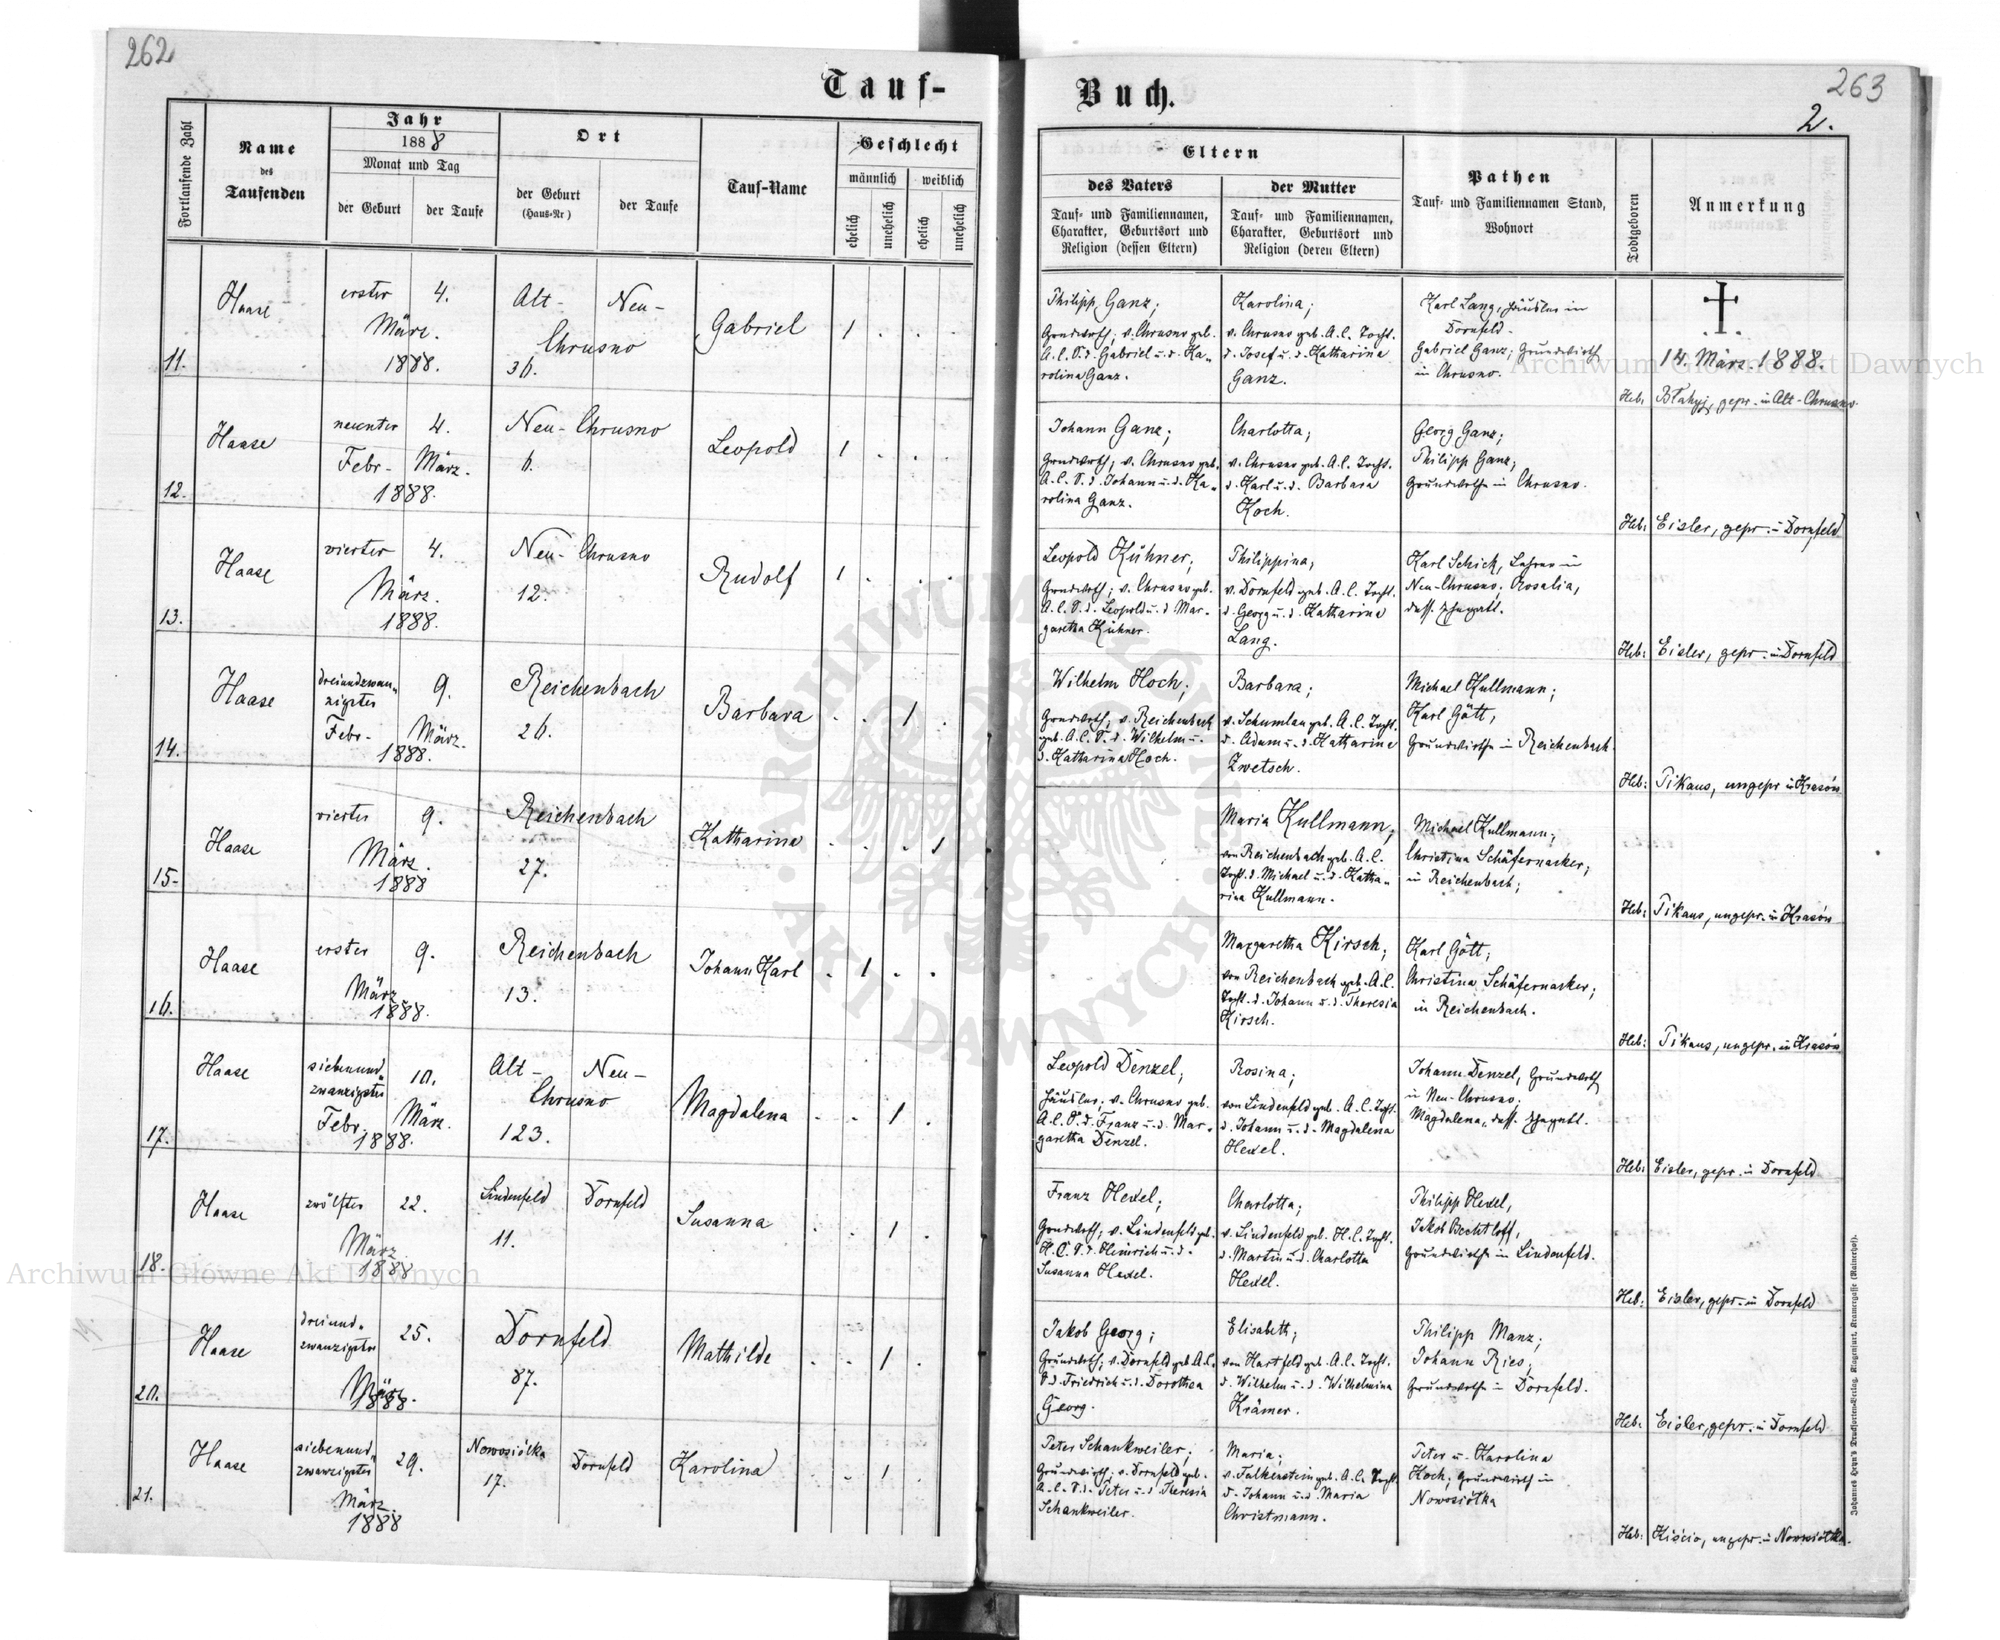 262
Tauf-
Fortlaufende Zahl
Name
des
Taufenden
Jahr
1888
Monat und Tag
der Geburt
der Taufe
Ort
der Geburt
(Haus-Nr)
der Taufe
Tauf-Name
Geschlecht
männlich
weiblich
ehelich
unehelich
ehelich
unehelich
11.
Haase
erster
4.
März.
1888.
Alt-
Neu-
Chrusno
36.
Gabriel
1 . . .
12.
Haase
neunter
4.
Febr-
März.
1888.
Neu-Chrusno
6.
Leopold
1 . . .
13.
Haase
vierter
4.
März.
1888.
Neu-Chrusno
12.
Rudolf
1 . . .
14.
Haase
dreiundzwan-
zigster
9.
Febr-
März.
1888.
Reichenbach
26.
Barbara
. . 1 .
15.
Haase
vierter
9.
März.
1888
Reichenbach
27.
Katharina
. . . 1
16.
Haase
erster
9.
März.
1888.
Reichenbach
13.
Johann Karl
. 1 . .
17.
Haase
siebenund-
zwanzigster
10.
Febr.
März.
1888.
Alt-
Neu-
Chrusno
123.
Magdalena
. . 1 .
18.
Haase
zwölfter
22.
März
1888
Lindenfeld
Dornfeld
11.
Susanna
. . 1 .
20.
Haase
dreiund-
zwanzigster
25.
März
1888.
Dornfeld
87.
Mathilde
. . 1 .
21.
Haase
siebenund-
zwanzigster
29.
März.
1888
Nowosiółka
Dornfeld
17.
Karolina
. . 1 .
263
2.
Buch.
Eltern
des Vaters
Tauf- und Familiennamen,
Charakter, Geburtsort und
Religion (dessen Eltern)
der Mutter
Tauf- und Familiennamen,
Charakter, Geburtsort und
Religion (deren Eltern)
Pathen
Tauf- und Familiennamen Stand,
Wohnort
Todtgeboren
Anmerkung
Philipp Ganz;
Grundwirth; v. Chrusno geb.
A.C. S.d. Gabriel u. d. Ka-
rolina Ganz.
Karolina;
v. Chrusno geb. A.C. Tocht.
d. Josef u. d. Katharina
Ganz.
Karl Lang, Häusler in
Dornfeld.
Gabriel Ganz; Grundwirth
in Chrusno.
14. März. 1888.
Heb: Błahyj, gepr. in Alt-Chrusno
Johann Ganz;
Grundwirth; v. Chrusno geb.
A.C. S.d. Johann u. d. Ka-
rolina Ganz.
Charlotta;
v. Chrusno geb. A.C. Tocht.
d. Karl u. d. Barbara
Koch.
Georg Ganz;
Philipp Ganz;
Grundwirthe in Chrusno.
Heb: Eisler, gepr. in Dornfeld
Leopold Kühner;
Grundwirth; v. Chrusno geb.
A.C. S.d. Leopold u. d. Mar-
garetha Kühner.
Philippina;
v. Dornfeld geb. A.C. Tocht.
d. Georg u. d. Katharina
Lang.
Karl Schick, Lehrer in
Neu-Chrusno; Rosalia,
dess. Ehegatt.
Heb: Eisler, gepr. in Dornfeld
Wilhelm Hoch;
Grundwirth; v. Reichenbach
geb. A.C. S.d. Wilhelm u.
d. Katharina Hoch.
Barbara;
v. Schumlau geb. A.C. Tocht.
d. Adam u. d. Katharina
Zwetsch.
Michael Kullmann;
Karl Gött;
Grundwirthe in Reichenbach.
Heb: Pikaus, ungepr. in Krasów
Maria Kullmann;
von Reichenbach geb. A.C.
Tocht. d. Michael u. d. Katha-
rina Kullmann.
Michael Kullmann;
Christina Schäfernacker;
in Reichenbach;
Heb: Pikaus, ungepr. in Krasów
Margaretha Kirsch;
von Reichenbach geb. A.C.
Tocht. d. Johann u. d. Theresia
Kirsch.
Karl Gött;
Christina Schäfernacker;
in Reichenbach.
Heb: Pikaus, ungepr. in Krasów
Leopold Denzel;
Häusler; v. Chrusno geb.
A.C. S.d. Franz u. d. Mar-
garetha Denzel.
Rosina;
von Lindenfeld geb. A.C. Tocht.
d. Johann u. d. Magdalena
Hexel.
Johann Denzel, Grundwirth
in Neu-Chrusno;
Magdalena, dess. Ehegatt.
Heb: Eisler, gepr. in Dornfeld
Franz Hexel;
Grundwirth; v. Lindenfeld geb.
H.C. S.d. Heinrich u. d.
Susanna Hexel.
Charlotta;
v. Lindenfeld geb. H.C. Tocht.
d. Martin u. d. Charlotta
Hexel.
Philipp Hexel,
Jakob Bechtloff,
Grundwirthe in Lindenfeld.
Heb: Eisler, gepr. in Dornfeld
Jakob Georg;
Grundwirth; v. Dornfeld geb. A.C.
S.d. Friedrich u. d. Dorothea
Georg.
Elisabeth;
von Hartfeld geb. A.C. Tocht.
d. Wilhelm u. d. Wilhelmina
Krämer.
Philipp Manz;
Johann Ries;
Grundwirthe in Dornfeld.
Heb: Eisler, gepr. in Dornfeld
Peter Schankweiler;
Grundwirth; v. Dornfeld geb.
A.C. S.d. Peter u. d. Theresia
Schankweiler.
Maria;
v. Falkenstein geb. A.C. Tocht.
d. Johann u. d. Maria
Christmann.
Peter u. Karolina
Koch; Grundwirth in
Nowosiółka
Heb: Kiścio, ungepr. in Nowosiółka.
Johannes Heyn's Drucksorten-Verlag, Klagenfurt, Kramergasse (Rainerhof).
Archiwum Główne Akt Dawnych
Archiwum Główne Akt Dawnych
ARCHIWUM GŁÓWNE · AKT DAWNYCH ·